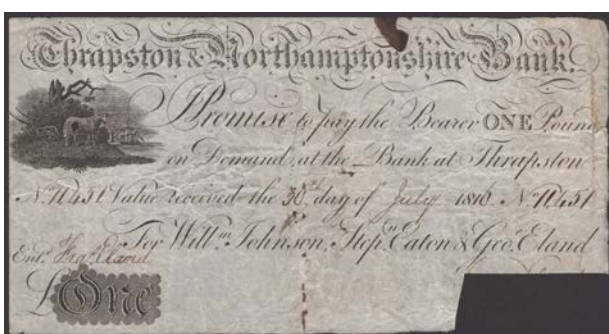 Thrapston & Northamptonshire Bank.
Promise to pay the Bearer ONE Pound
on Demand at the Bank at Thrapston
Value received the 30th day of July 1810
For Willm. Johnson, Stepn. Eaton & Geo. Eland
Entd.
£One